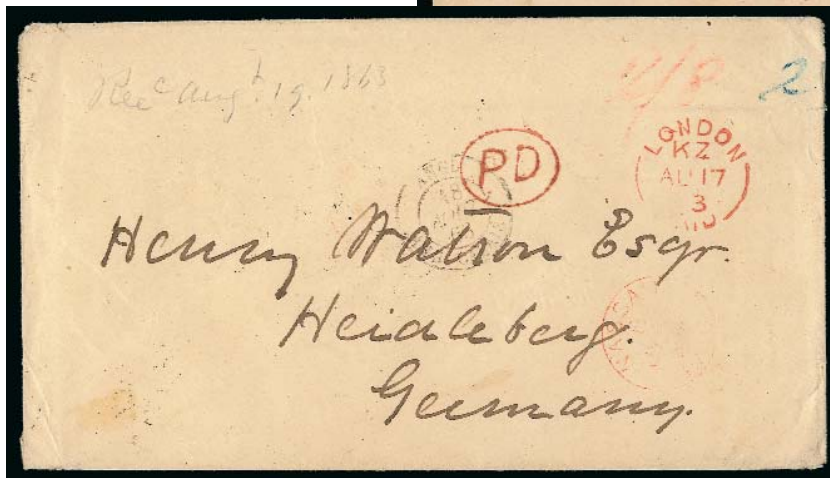 Recd Augt. 19. 1863
2
PD
LONDON
KZ
AU 17
3
Henry Watson Esqr.
Heidleberg.
Germany.